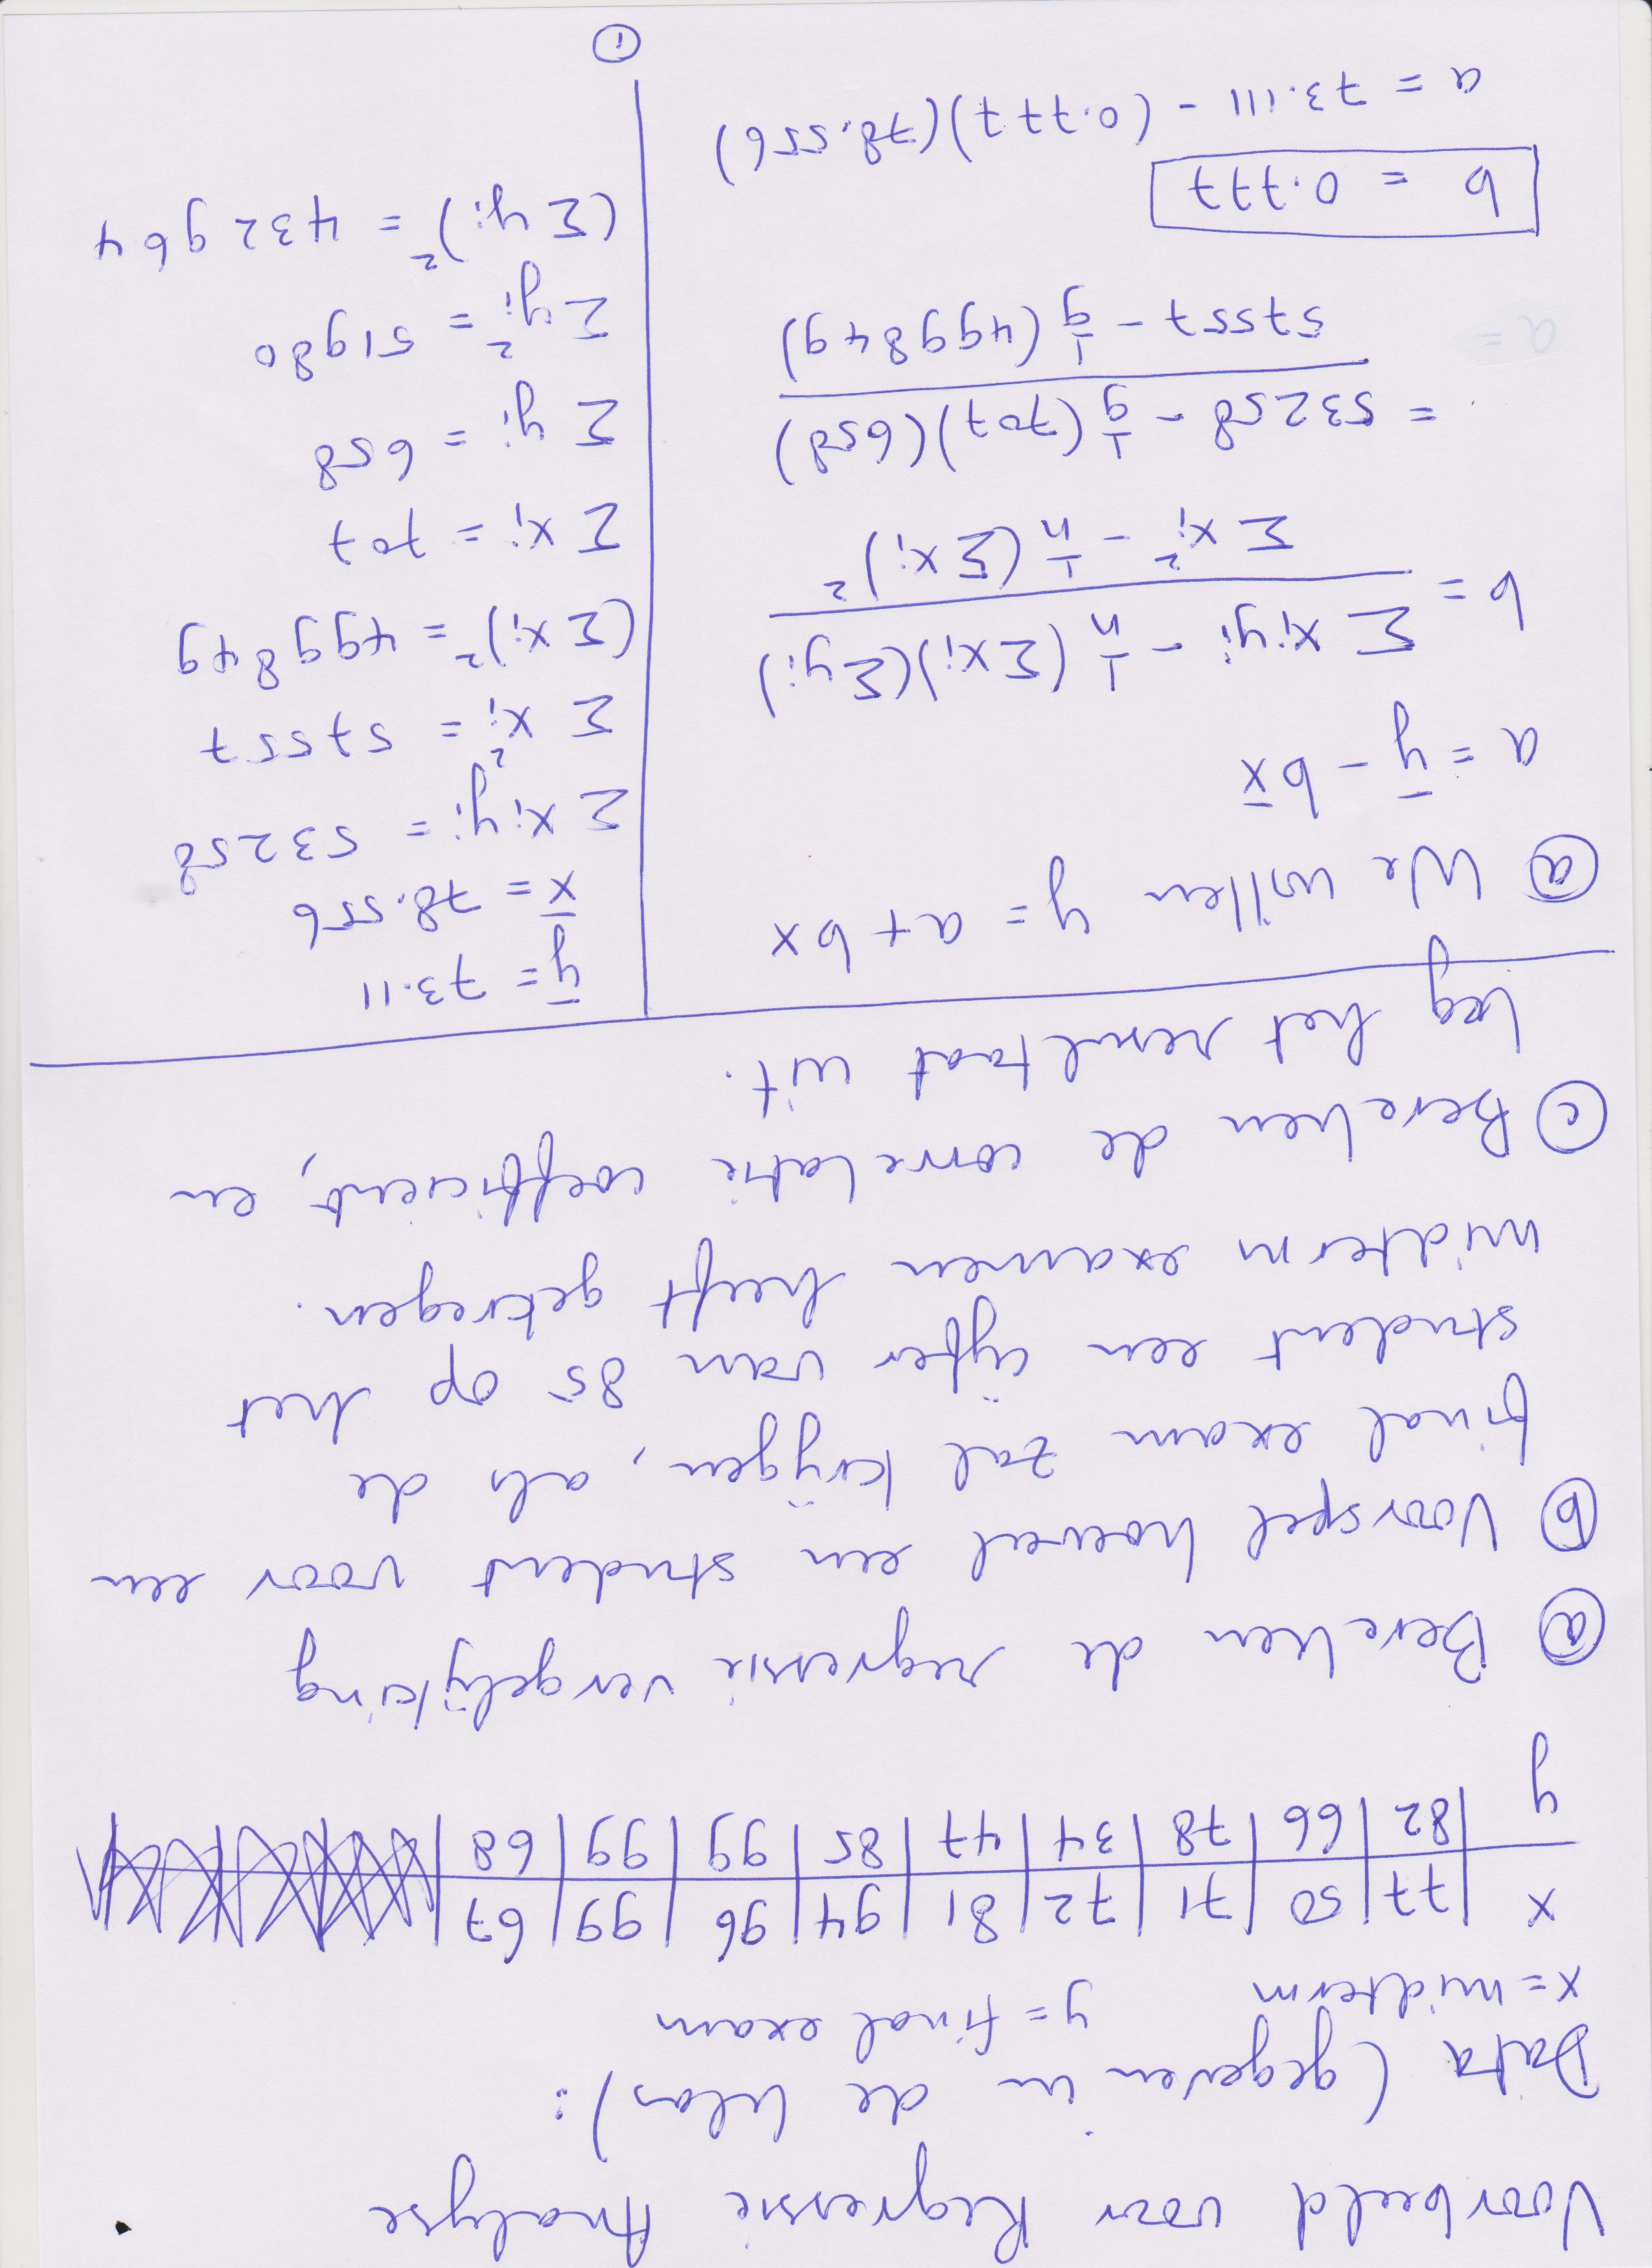 Voorbeeld voor Regressie Analyse
Data (gegeven in de klas):
x = midterm y = final exam
x | 77 | 50 | 71 | 72 | 81 | 94 | 96 | 99 | 67 |
y | 82 | 66 | 78 | 34 | 47 | 85 | 99 | 99 | 68 |
(a) Bereken de regressie vergelijking
(b) Voorspel hoeveel een student voor een
final exam zal krijgen, als de
student een cijfer van 85 op het
midterm examen heeft gekregen.
(c) Bereken de correlatie coefficient, en
leg het resultaat uit.
(a) We willen y = a + bx
a = ȳ - bx̄
b = (Σxiyi - 1/n (Σxi)(Σyi)) / (Σxi² - 1/n (Σxi)²)
= (53258 - 1/9 (707)(658)) / (57557 - 1/9 (499849))
b = 0.777
a = 73.111 - (0.777)(78.556)
ȳ = 73.11
x̄ = 78.556
Σxiyi = 53258
Σxi² = 57557
(Σxi)² = 499849
Σxi = 707
Σyi = 658
Σyi² = 51980
(Σyi)² = 432964
(1)